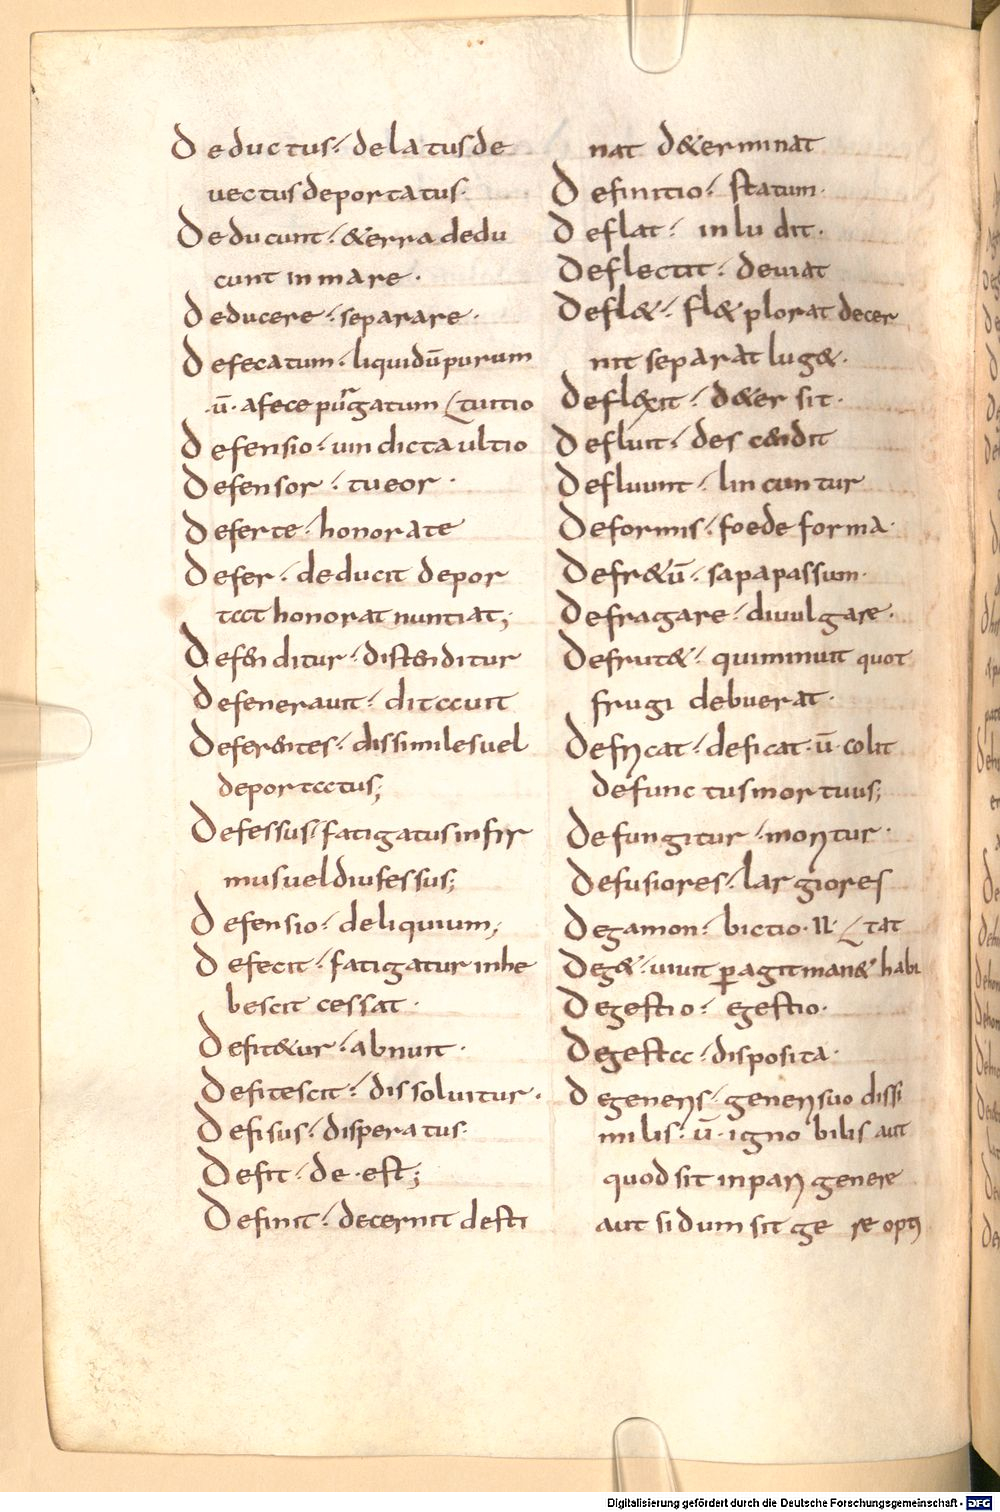 Deductus· delatus de
uectus deportatus·
Deducunt· &erra dedu
cunt in mare·
Deducere· separare·
Defecatum· liquidū purum
·ū· afece purgatum tutio
Defensio· uindicta ultio
Defensor· tueor·
Deferte· honorate
Defer· deducit depor
tat honorat nuntiat;
Defenditur· distenditur
Defenerauit· ditauit
Deferentes· dissimiles uel
deportatus;
Defessus· fatigatus infir
mus uel diufessus;
Defensio· deliquium;
Defecit· fatigatur inhe
bescit cessat·
Defit&ur· abnuit·
Defitescit· dissoluitur·
Defisus· disperatus·
Defit· de·est;
Definit· decernit desti
nat d&erminat
Definitio· statum·
Deflat· inludit·
Deflectit· deuiat
Defl&· fl& plorat decer
nit separat lug&·
Deflexit· d&er sit·
Defluit· descendit
Defluunt· lincuntur
Deformis· foede forma·
Defr&ū· sapa passum·
Defragare· diuulgare·
Defrut&· qui minuit quot
frugi debuerat·
Defricat· deficat·ū·colit
defunctus mortuus;
Defungitur· moritur·
Defusiores· largiores
Degamon· bictio·N· tat
Deg&· uiuit peragit man& habi
Degestio· egestio·
Degesta· disposita·
Degeneris· generi suo dissi
milis·ū·ignobilis aut
quod sit inpari genere
aut si dum sit ge re opti
Digitalisierung gefördert durch die Deutsche Forschungsgemeinschaft - DFG